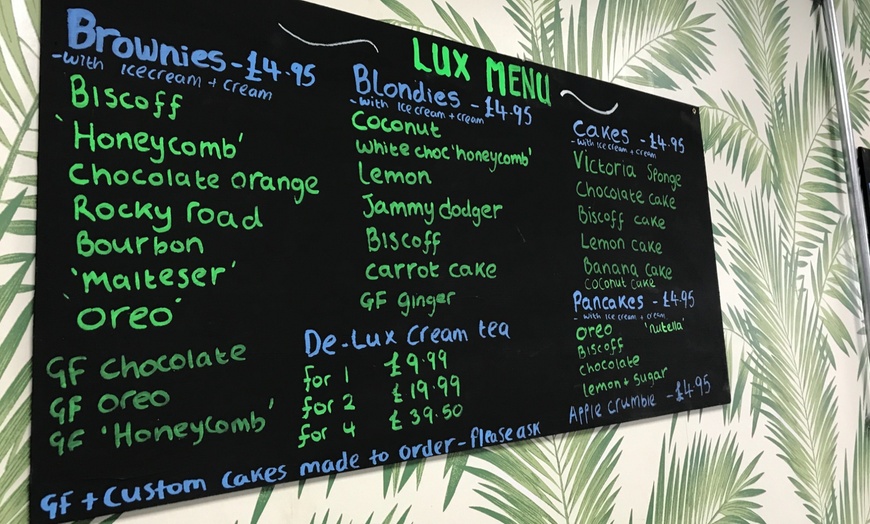 LUX MENU
Brownies - £4.95
- with icecream + cream
Biscoff
'Honeycomb'
Chocolate orange
Rocky road
Bourbon
'Malteser'
oreo
GF Chocolate
GF oreo
GF 'Honeycomb'
Blondies - £4.95
- with Ice cream + cream
Coconut
white choc 'honeycomb'
Lemon
Jammy dodger
Biscoff
carrot cake
GF ginger
De-Lux Cream tea
for 1 £9.99
for 2 £19.99
for 4 £39.50
Cakes - £4.95
- with ice cream + cream
Victoria Sponge
Chocolate cake
Biscoff cake
Lemon cake
Banana cake
coconut cake
Pancakes - £4.95
- with ice cream + cream
oreo 'nutella'
Biscoff
chocolate
lemon + sugar
Apple crumble - £4.95
GF + custom cakes made to order - please ask